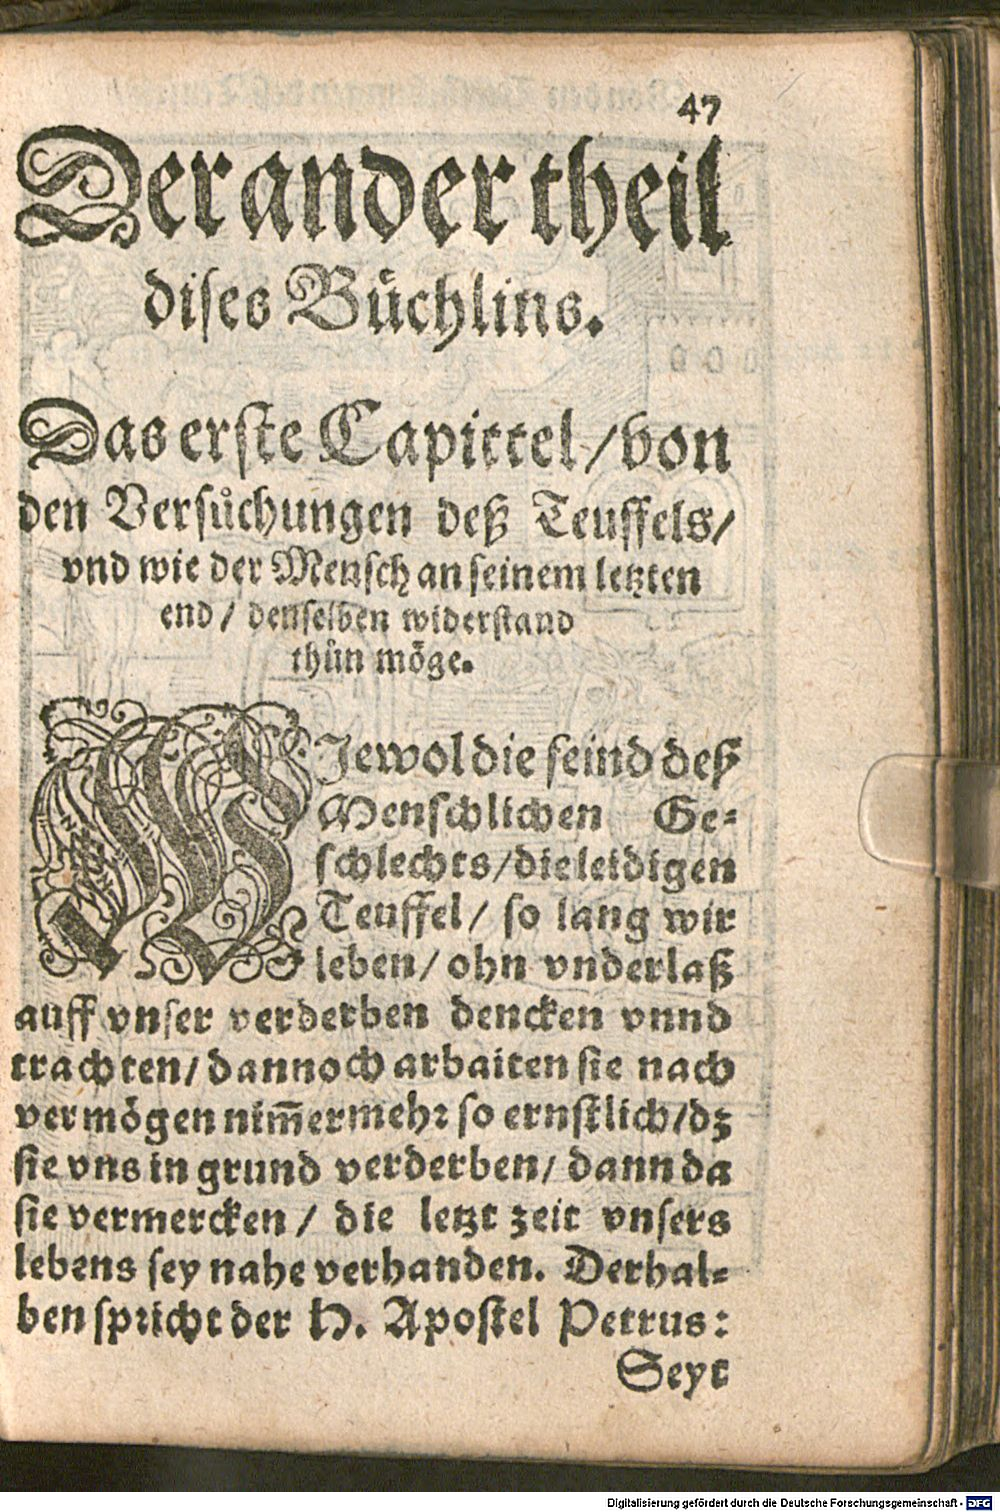 47
Der ander theil
dises Büchlins.
Das erste Capittel / von
den Versuͦchungen deß Teuffels /
vnd wie der Mensch an seinem letzten
end / denselben widerstand
thuͦn möge.
WIewol die feind deß
Menschlichen Ge-
schlechts / die leidigen
Teuffel / so lang wir
leben / ohn vnderlaß
auff vnser verderben dencken vnnd
trachten / dannoch arbaiten sie nach
vermögen nim̄ermehr so ernstlich / dz
sie vns in grund verderben / dann da
sie vermercken / die letzt zeit vnsers
lebens sey nahe verhanden. Derhal-
ben spricht der H. Apostel Petrus:
Seyt
Digitalisierung gefördert durch die Deutsche Forschungsgemeinschaft - DFG